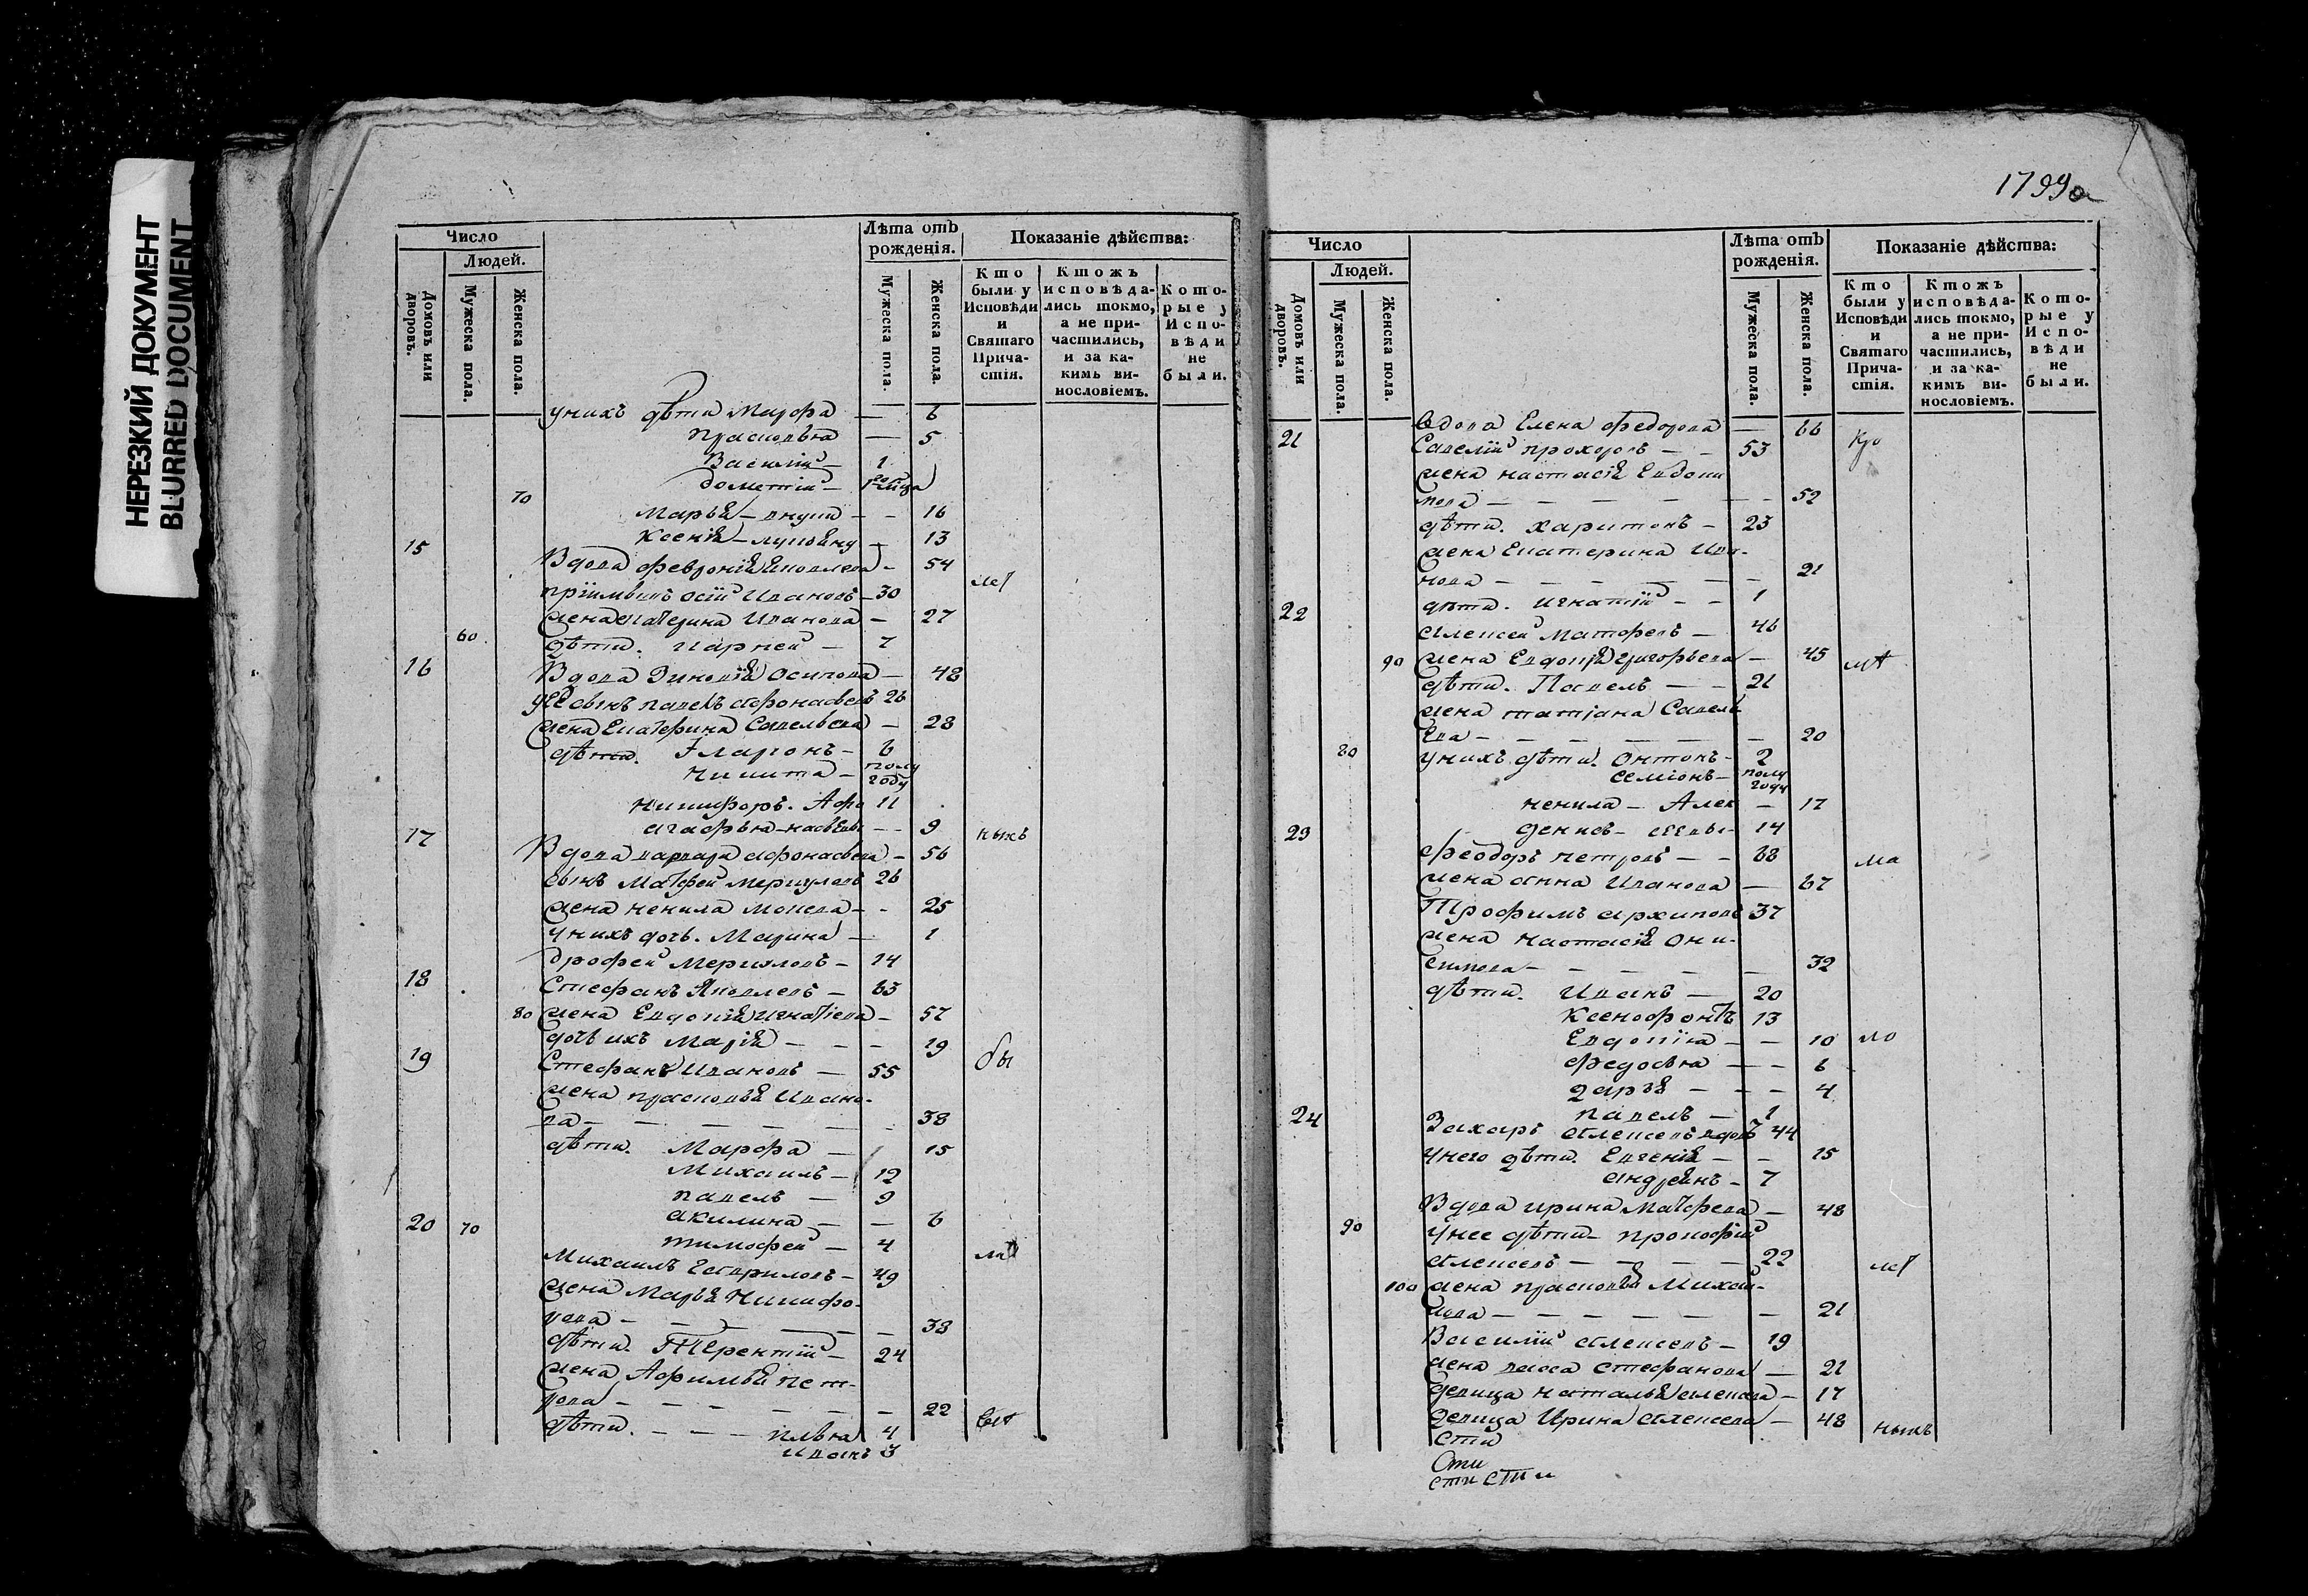 НЕРЕЗКИЙ ДОКУМЕНТ
BLURRED DOCUMENT
Число
Людей.
Домовъ или дворовъ.
Мужеска пола.
Женска пола.
Лѣта отъ рожденія.
Мужеска пола.
Женска пола.
Показаніе дѣйства:
Кто были у Исповѣди и Святаго Причастія.
Ктожъ исповѣдались токмо, а не причастились, и за какимъ винословіемъ.
Которые у Исповѣди не были.
унихъ дѣти Марфа — 6
прасковья — 5
Василій — 1
дометій —
70
Марья — — 16
Ксенія — — 13
15 Вдова феврониія — 54
Осіпъ Ивановъ — 30
жена Ивановa — 27
60 дѣти. — 7
16 Вдова Осипова — 48
сынъ павелъ афонасьевъ 26
жена Екатерина Савельева — 28
дѣти. Іларіонъ — 6
Никита — полу году
Никифоръ. 11
агафья — 9 ныхъ
17 Вдова варвара афонасьева — 56
сынъ Матфей меркуловъ 26
жена ненила — 25
унихъ дочь. Марина — 1
дрофей Меркуловъ — 14
18 Стефанъ Яковлевъ — 63
80 жена Евдокія игнатіева — 57
дочь ихъ Марія — — — 19
19 Стефанъ Ивановъ — 55 бы
жена прасковья Ивано-
ва — — — — — 38
дѣти. Марфа — 15
Михаилъ — 12
павелъ — 9
акилина — — 6
20 70 тимофей — 4
Михаилъ Гавриловъ — 49
жена Марья Никифо-
рова — — — — — 38
дѣти. Терентій — 24
жена Афимья пет-
рова — — — — — 22
дѣти. — — — 4
иванъ 3
1799а
Число
Людей.
Домовъ или дворовъ.
Мужеска пола.
Женска пола.
Лѣта отъ рожденія.
Мужеска пола.
Женска пола.
Показаніе дѣйства:
Кто были у Исповѣди и Святаго Причастія.
Ктожъ исповѣдались токмо, а не причастились, и за какимъ винословіемъ.
Которые у Исповѣди не были.
вдова Елена федорова — 66
21 Савелій прохоровъ — — 53
жена настасія Евдоки
мова — — — — — 52
дѣти. харитонъ — 23
жена Екатерина Ива-
нова — — — — — 21
дѣти. игнатій — — 1
22 алексей Матфевъ — 46
90 жена Евдокія григорьева — 45
дѣти. Павелъ — — 21
жена татіана Савель
ева — — — — — 20
80 унихъ дѣти. Онтонъ — 2
семіонъ — полу году
ненила — Алек — 17
денисъ — 14
23 феодоръ петровъ — — 68 ма
жена анна Иванова — 67
Трофимъ архиповъ 37
жена настасія Они-
симова — — — — — 32
дѣти. Иванъ — 20
Ксенофонтъ 13
Евдокіа — — 10 ло
федосья — — 6
дарья — — — 4
павелъ — 1
24 Захаръ алексевъ вдовъ 44
Унего дѣти. Евгенія — — 15
андреянъ — 7
Вдова ирина Матфева — 48
90 Унее дѣти — прокофій
алексевъ — — — — 22
100 жена прасковья Михай-
лова — — — — — 21
Василій алексевъ — 19
жена васса стефанова — 21
девица наталья алексева — 17
девица Ирина алексева — 48 ныхъ
сти
Оти
сти сти